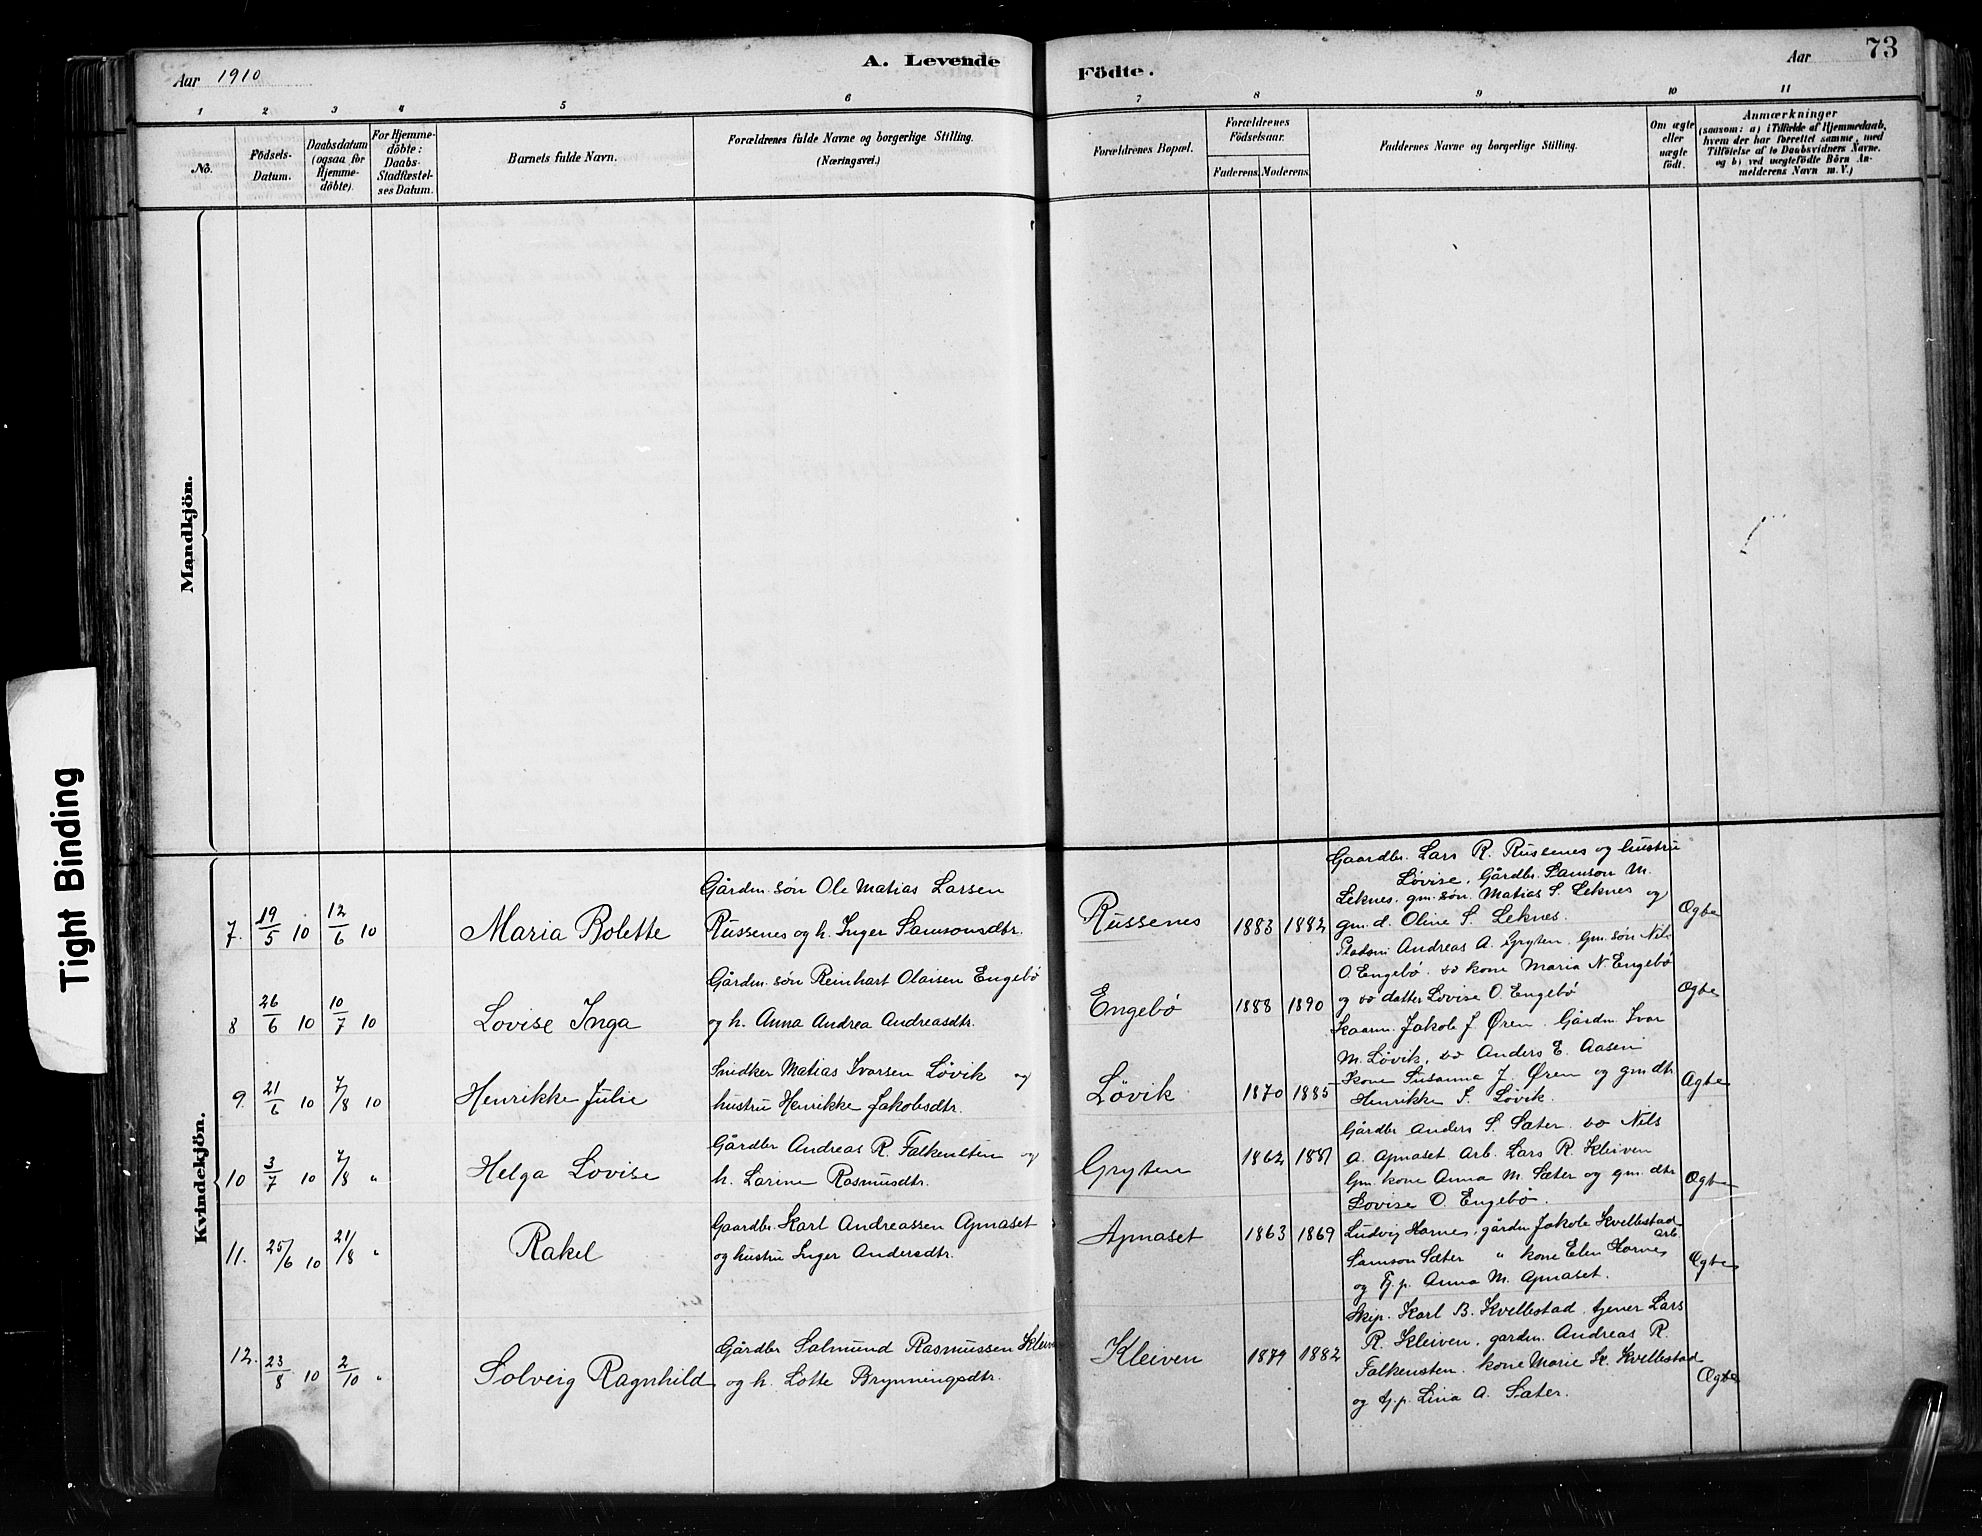 Aar 1910
A. Levende
Födte.
Aar
73
1 2 3 4 5 6 7 8 9 10 11
No.
Födsels-
Datum.
Daabsdatum
(ogsaa for
Hjemme-
döbte).
For Hjemme-
döbte:
Daabs-
Stadfæstel-
ses Datum.
Barnets fulde Navn.
Forældrenes fulde Navne og borgerlige Stilling.
(Næringsvei.)
Forældrenes Bopæl.
Forældrenes
Födselsaar.
Faderens. Moderens.
Faddernes Navne og borgerlige Stilling.
Om ægte
eller
uægte
födt.
Anmærkninger
(saasom: a) i Tilfælde af Hjemmedaab,
hvem der har forrettet samme, med
Tilföielse af to Daabsvidners Navne.
og b) ved uægtefödte Börn An-
melderens Navn m. V.)
Mandkjön.
Kvindekjön.
Tight Binding
7. 19/5 10 12/6 10
Maria Bolette
Gårdm. søn Ole Matias Larsen
Russenes og h. Inger Samsonsdtr.
Russenes
1883 1882
Gaardbr. Lars R. Russenes og hustru
Lovise, Gårdbr. Samson M.
Leknes. gm. søn. Matias S. Leknes og
gm. d. Oline S. Leknes.
Ægte
8 26/6 10 10/7 10
Lovise Inga
Gårdm. søn Reinhart Olaisen Engebø
og h. Anna Andrea Andreasdtr.
Engebø
1888 1890
Pladsm. Andreas A. Gryten, Gm. søn Nils
O. Engebø. do kone Maria N. Engebø
og do datter Lovise O. Engebø
Ægte
9. 21/6 10 7/8 10
Henrikke Julie
Snedker Matias Ivarsen Løvik og
hustru Henrikke Jakobsdtr.
Løvik
1870 1885
Kaarm. Jakob J. Øren. Gårdm. Ivar
M. Løvik, do Anders E. Aasen
Kone Susanna J. Øren og gm dtr
Henrikke S. Løvik.
Ægte
10 3/7 10 7/8 "
Helga Lovise
Gårdbr Andreas R. Falkensten og
h. Larine Rasmusdtr.
Gryten
1862 1881
Gårdbr Anders S. Sæter. do Nils
A. Apnaset Arb. Lars R. Kleiven
Gm. kone Anna M. Sæter og gm. dtr
Lovise O. Engebø.
Ægte
11. 25/6 10 21/8 "
Rakel
Gaardbr. Karl Andreassen Apnaset
og hustru Inger Andersdtr.
Apnaset
1863 1869
Ludvig Hornes, gårdm Jakob Kvellestad
arb.
Samson Sæter " kone Elen Hornes
og Tj.p. Anna M. Apnaset.
Ægte
12. 23/8 10 2/10 "
Solveig Ragnhild
Gårdbr Salmund Rasmussen Kleiven
og h. Lotte Brynningsdtr.
Kleiven
1879 1882
Skip. Karl B. Kvellestad, tjener Lars
R. Kleiven, gardm. Andreas R.
Falkensten. kone Marie K. Kvellestad
og tj.p. Lina A. Sæter.
Ægte